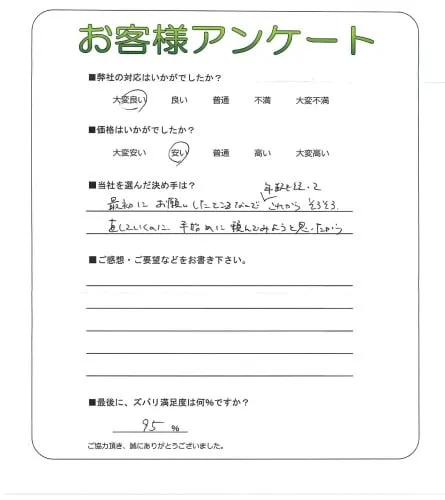 お客様アンケート
■弊社の対応はいかがでしたか?
大変良い 良い 普通 不満 大変不満
■価格はいかがでしたか?
大変安い 安い 普通 高い 大変高い
■当社を選んだ決め手は?
年数も経って
最初に お願いしたところなので これから そろそろ
直していくのに 手始めに 頼んでみようと思ったから
■ご感想・ご要望などをお書き下さい。
■最後に、ズバリ満足度は何%ですか?
95 %
ご協力頂き、誠にありがとうございました。